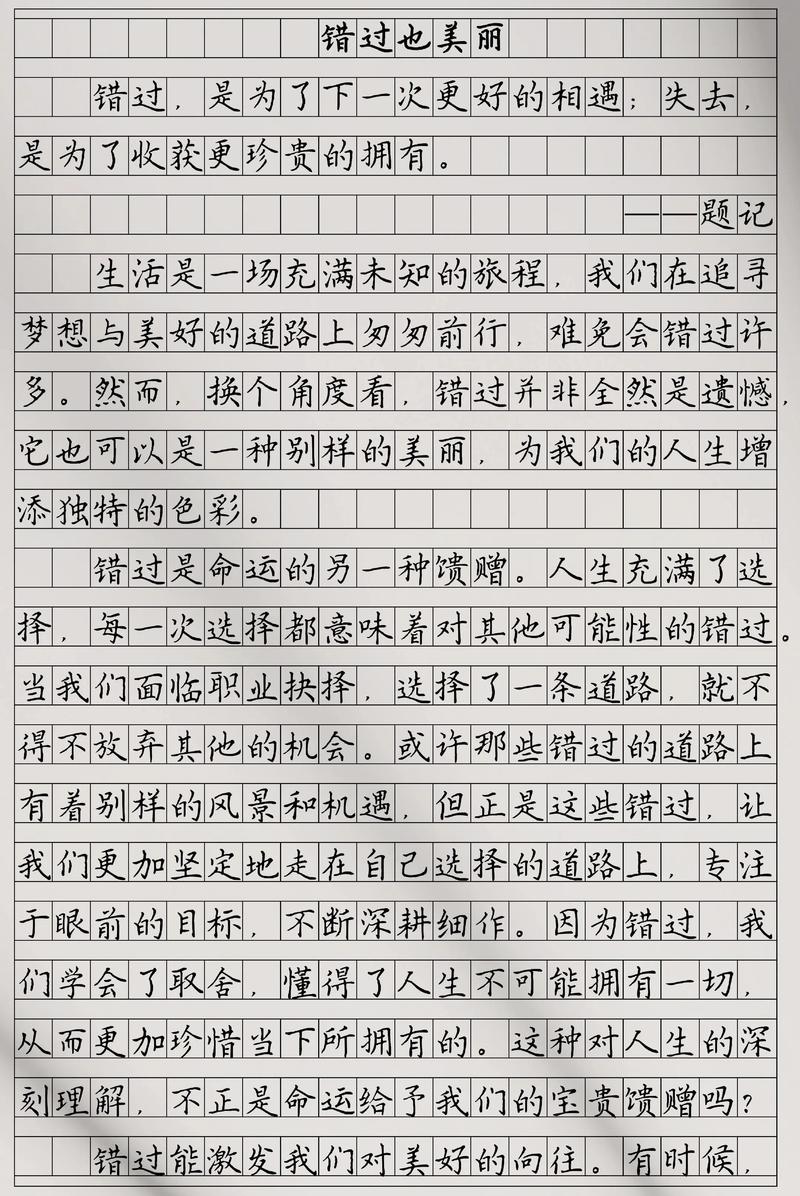 错过也美丽
错过，是为了下一次更好的相遇；失去，
是为了收获更珍贵的拥有。
——题记
生活是一场充满未知的旅程，我们在追寻
梦想与美好的道路上匆匆前行，难免会错过许
多。然而，换个角度看，错过并非全然是遗憾，
它也可以是一种别样的美丽，为我们的人生增
添独特的色彩。
错过是命运的另一种馈赠。人生充满了选
择，每一次选择都意味着对其他可能性的错过。
当我们面临职业抉择，选择了一条道路，就不
得不放弃其他的机会。或许那些错过的道路上
有着别样的风景和机遇，但正是这些错过，让
我们更加坚定地走在自己选择的道路上，专注
于眼前的目标，不断深耕细作。因为错过，我
们学会了取舍，懂得了人生不可能拥有一切，
从而更加珍惜当下所拥有的。这种对人生的深
刻理解，不正是命运给予我们的宝贵馈赠吗？
错过能激发我们对美好的向往。有时候，